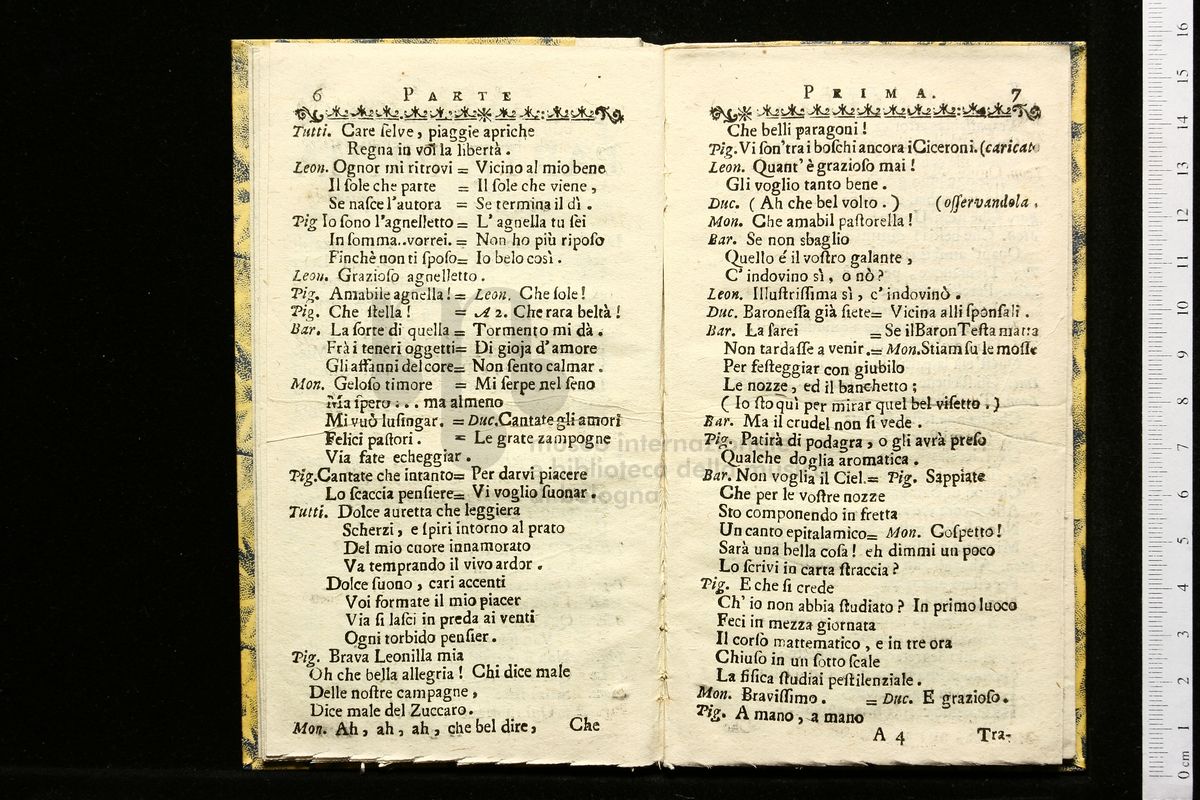 6 PARTE
Tutti. Care ſelve, piaggie apriche
Regna in voi la libertà.
Leon. Ognor mi ritrovi = Vicino al mio bene
Il ſole che parte = Il ſole che viene,
Se naſce l'autora = Se termina il dì.
Pig Io ſono l'agnelletto = L' agnella tu ſei
In ſomma..vorrei. = Non ho più ripoſo
Finchè non ti ſpoſo= Io belo così.
Leon. Grazioſo agnelletto.
Pig. Amabile agnella! = Leon. Che ſole!
Pig. Che ſtella! = A 2. Che rara beltà!
Bar. La ſorte di quella = Tormento mi dà.
Frà i teneri oggetti= Di gioja d'amore
Gli affanni del core= Non ſento calmar.
Mon. Geloſo timore = Mi ſerpe nel ſeno
Ma ſpero... ma almeno
Mi vuò luſingar. = Duc. Cantate gli amori
Felici paſtori. = Le grate zampogne
Via fate echeggiar.
Pig. Cantate che intanto= Per darvi piacere
Lo ſcaccia penſiere= Vi voglio ſuonar.
Tutti. Dolce auretta che leggiera
Scherzi, e ſpiri intorno al prato
Del mio cuore innamorato
Va temprando il vivo ardor.
Dolce ſuono, cari accenti
Voi formate il mio piacer
Via ſi laſci in preda ai venti
Ogni torbido penſier.
Pig. Brava Leonilla mia
Oh che bella allegria! Chi dice male
Delle noſtre campagne,
Dice male del Zuccaro.
Mon. Ah, ah, ah, che bel dire,
Che
PRIMA. 7
Che belli paragoni!
Pig. Vi ſon' tra i boſchi ancora i Ciceroni. (caricato
Leon. Quant' è grazioſo mai!
Gli voglio tanto bene.
Duc. (Ah che bel volto.) (oſſervandola,
Mon. Che amabil paſtorella!
Bar. Se non sbaglio
Quello é il voſtro galante,
C' indovino sì, o nò?
Leon. Illuſtriſſima sì, c' indovinò.
Duc. Baroneſſa già ſiete= Vicina alli ſponſali.
Bar. La ſarei = Se il Baron Teſta matta
Non tardaſſe a venir.= Mon. Stiam ſu le moſſe
Per feſteggiar con giubilo
Le nozze, ed il banchetto;
(Io ſto quì per mirar quel bel viſetto.)
Bar. Ma il crudel non ſi vede.
Pig. Patirà di podagra, o gli avrà preſo
Qualche doglia aromatica.
Bar. Non voglia il Ciel.= Pig. Sappiate
Che per le voſtre nozze
Sto componendo in fretta
Un canto epitalamico= Mon. Coſpetto!
Sarà una bella coſa! eh dimmi un poco
Lo ſcrivi in carta ſtraccia?
Pig. E che ſi crede
Ch' io non abbia ſtudiato? In primo luoco
Feci in mezza giornata
Il corſo mattematico, e in tre ora
Chiuſo in un ſotto ſcale
La fiſica ſtudiai peſtilenziale.
Mon. Braviſſimo. = Duc. E grazioſo.
Pig. A mano, a mano
A 4 Tra-
museo internazionale
biblioteca della musica
bologna
0 cm 1 2 3 4 5 6 7 8 9 10 11 12 13 14 15 16